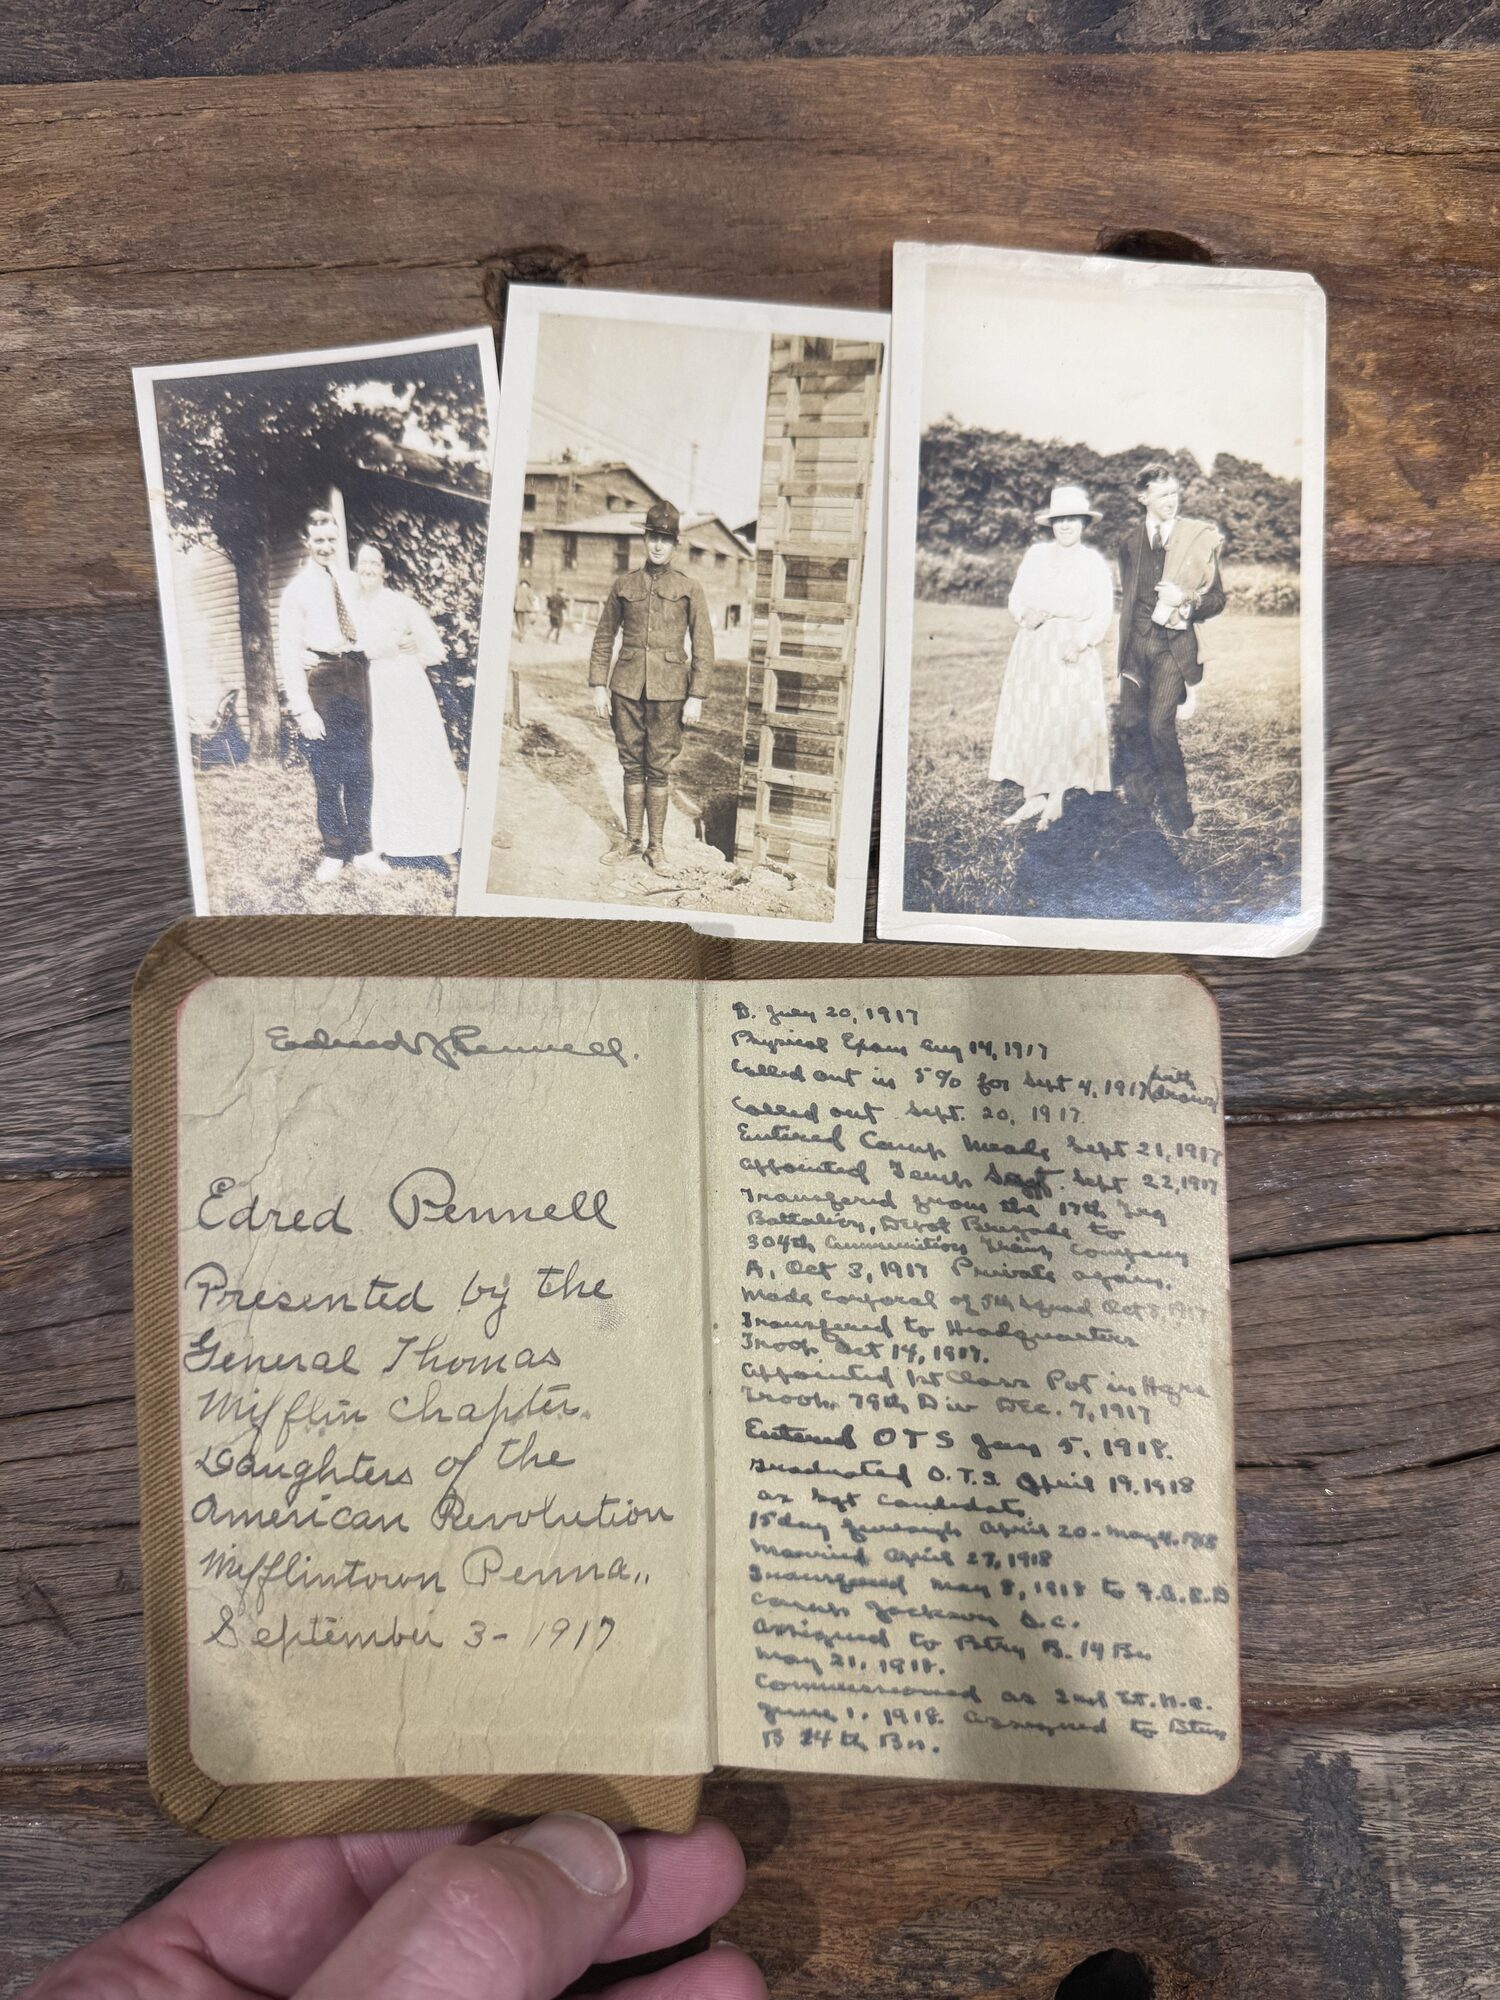 Edred J Pennell.
Edred Pennell
Presented by the
General Thomas
Mifflin Chapter.
Daughters of the
American Revolution
Mifflintown Penna.,
September 3 - 1917
D. July 20, 1917
Physical Exam Aug 14, 1917
Called out in 5% for Sept 4, 1917 (with drawn)
Called out Sept. 20, 1917
Entered Camp Meade Sept 21, 1917
Appointed Temp Sergt. Sept 22, 1917
Transfered from the 17th Trg
Battalion, Depot Brigade to
304th Ammunition Train Company
A, Oct 3, 1917 Private again.
Made Corporal of 5th Squad Oct 8, 1917
Transfered to Headquarters
Troop Oct 14, 1917.
Appointed 1st Class Pvt in Hqrs
Troop. 79th Div Dec. 7, 1917
Entered OTS Jan 5, 1918.
Graduated O.T.S. April 19, 1918
as Sgt Candidate
15 day furlough April 20 - May 4, 1918
Married April 27, 1918
Transfered May 8, 1918 to F.A.R.D
Camp Jackson S.C.
Assigned to Btry B. 14 Bn
May 21, 1918.
Commissioned as 2nd Lt. N.A.
June 1, 1918. Assigned to Btry
B 24th Bn.